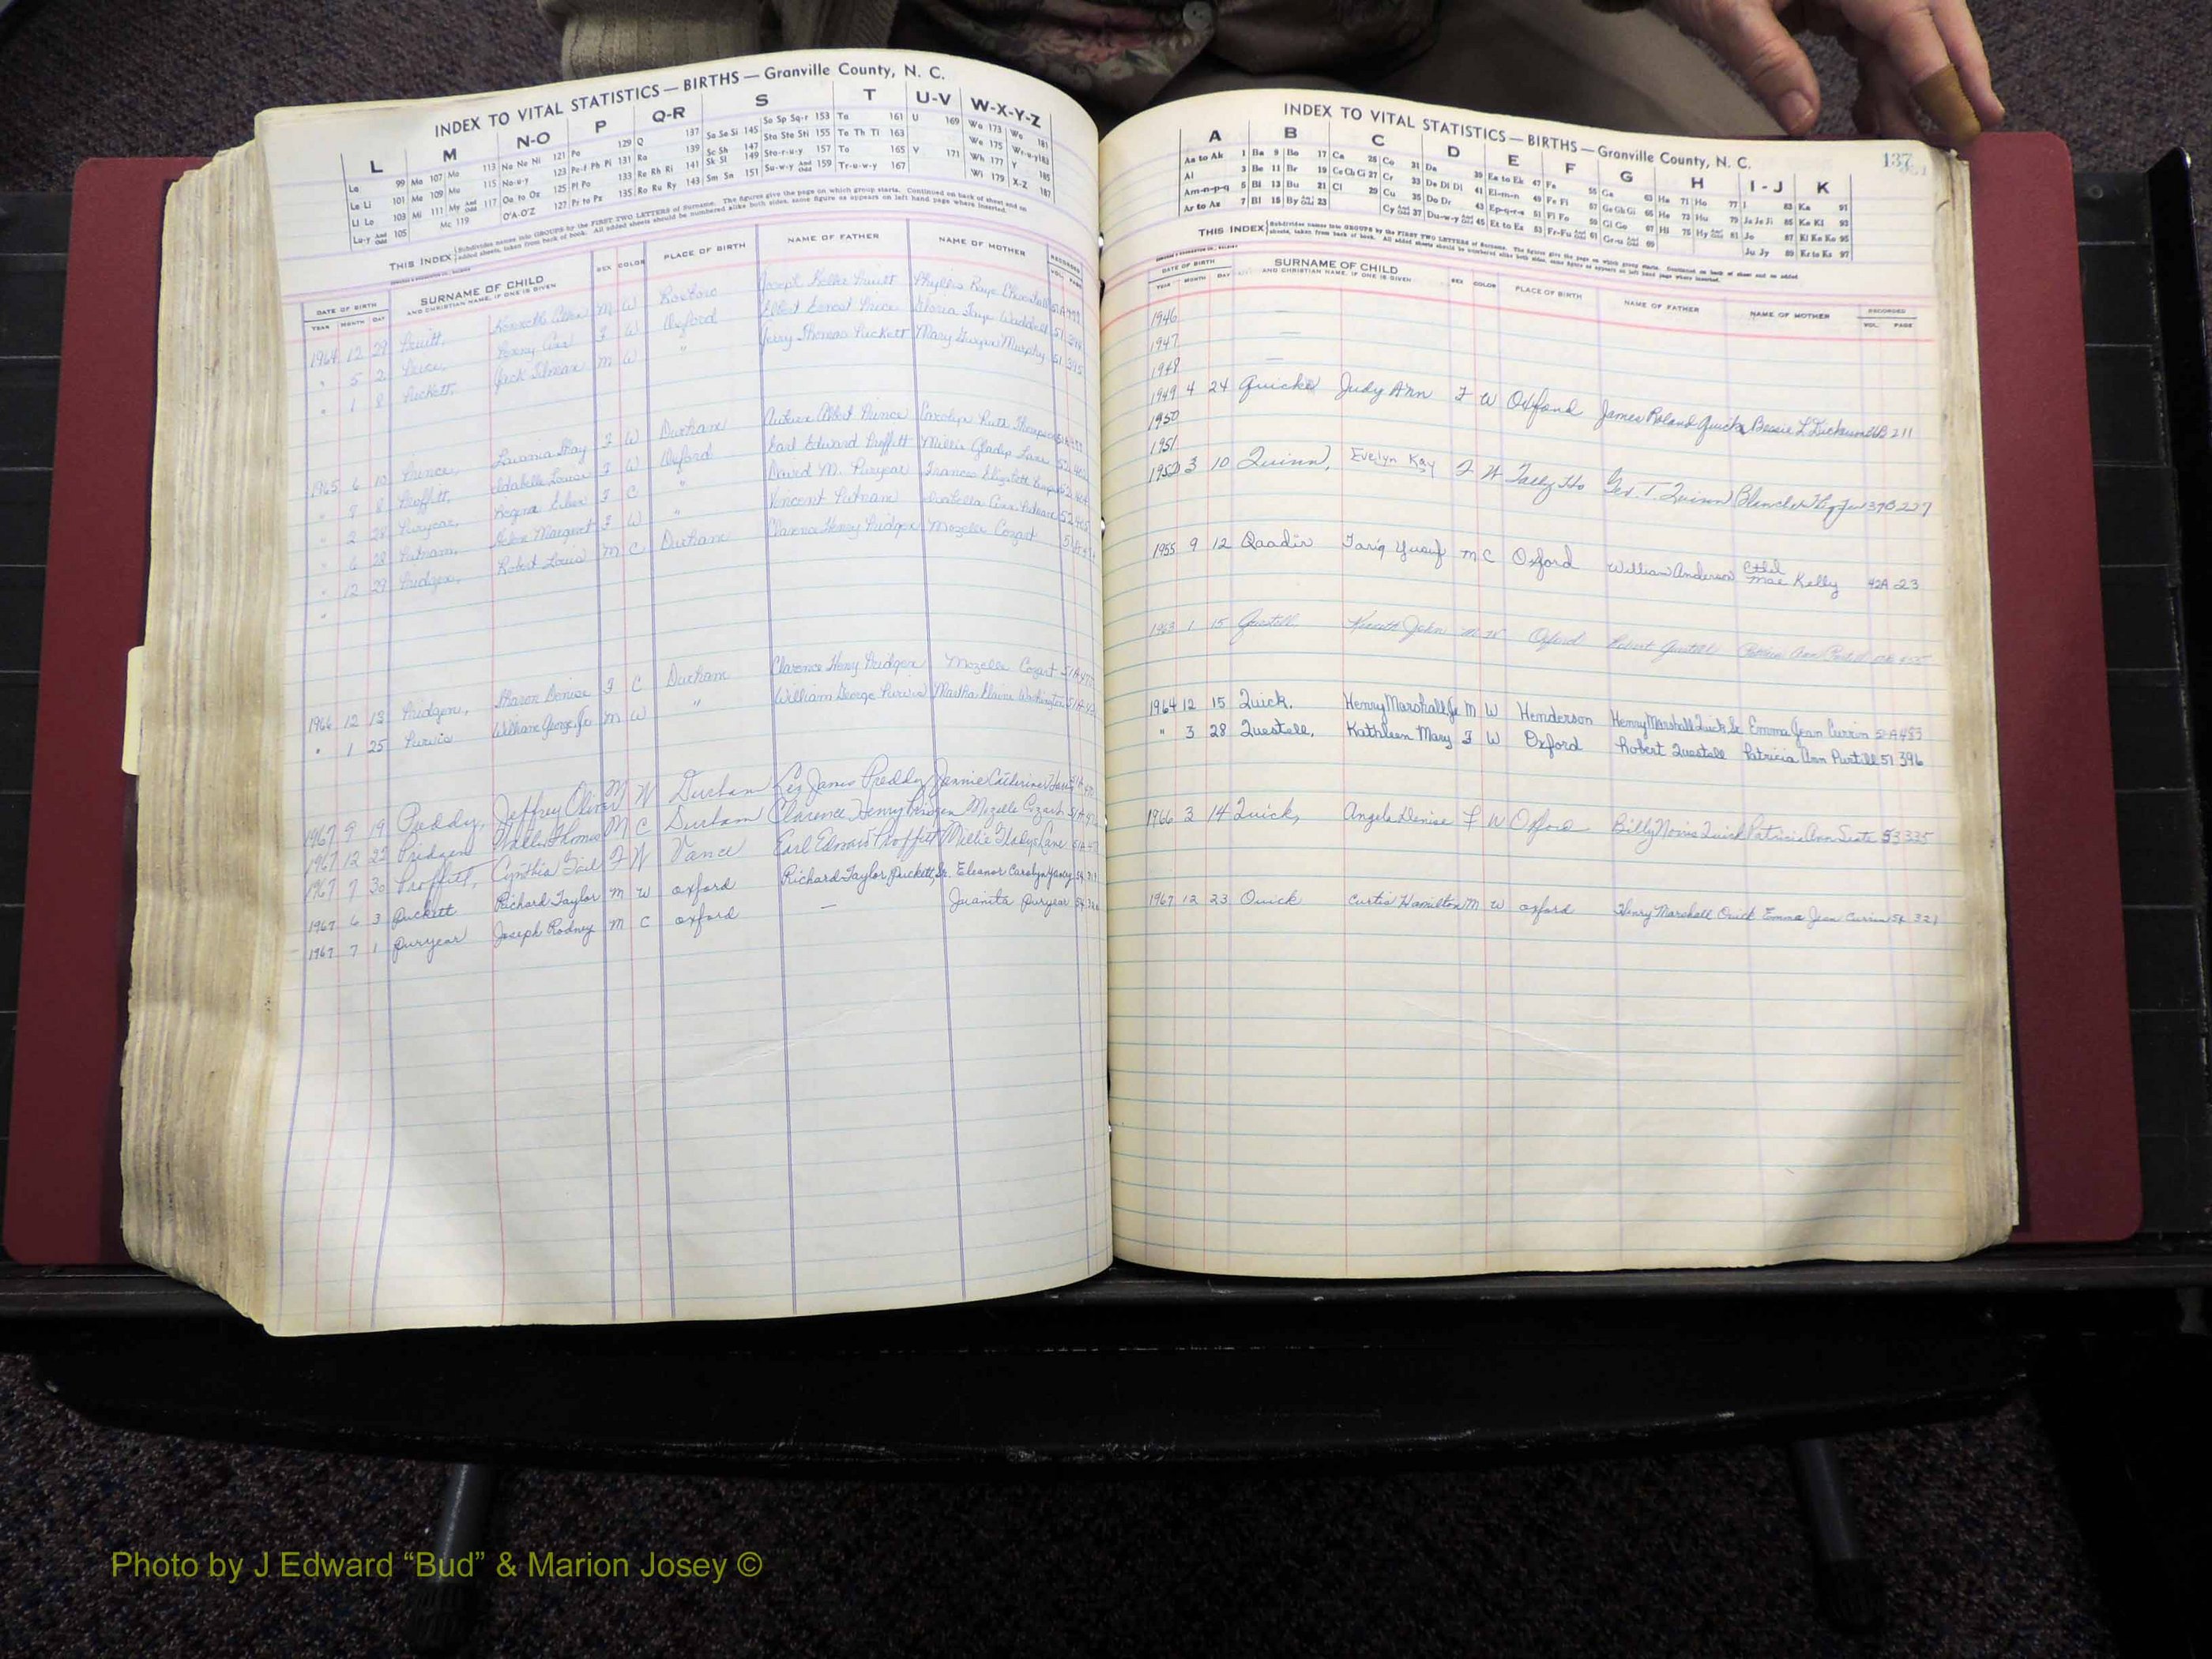 INDEX TO VITAL STATISTICS — BIRTHS — Granville County, N. C.
L M N-O P Q-R S T U-V W-X-Y-Z
La 99 Ma 107 Me 113 Na Ne Ni 121 Pa 129 Q 137 Sa Se Si 145 So Sp Sq-r 153 Ta 161 U 169 Wa 173 Wo 181
Le Li 101 Ma 109 Mo 115 No-u-y 123 Pe-f Ph Pi 131 Ra 139 Sc Sh 147 Sta Ste Sti 155 Te Th Ti 163 We 175 Wr-u-y 183
Ll Lo 103 Mi 111 My And Odd 117 Oa to Oz 125 Pl Po 133 Re Rh Ri 141 Sk Sl 149 Sto-r-u-y 157 To 165 V 171 Wh 177 Y 185
Lu-y And Odd 105 Mc 119 O'A-O'Z 127 Pr to Pz 135 Ro Ru Ry 143 Sm Sn 151 Su-w-y And Odd 159 Tr-u-w-y 167 Wi 179 X-Z 187
THIS INDEX Subdivides names into GROUPS by the FIRST TWO LETTERS of Surname. The figures give the page on which group starts. Continued on back of sheet and on
added sheets, taken from back of book. All added sheets should be numbered alike both sides, same figure as appears on left hand page where inserted.
DATE OF BIRTH SURNAME OF CHILD SEX COLOR PLACE OF BIRTH NAME OF FATHER NAME OF MOTHER RECORDED
YEAR MONTH DAY AND CHRISTIAN NAME, IF ONE IS GIVEN VOL. PAGE
1964 12 29 Pruitt, Kenneth Allen M W Roxboro Joseph Keller Pruitt Phyllis Raye
" 5 2 Price, Ann F W Oxford Elbert Ernest Price Gloria Faye Waddell 51
" 1 8 Puckett, Jack M W " Jerry Thomas Puckett Mary Murphy 51 315
1965 6 10 Prince, Lavonia F W Durham Albert Prince Carolyn Ruth Thompson
" 8 8 Proffitt, Idabelle Louise F W Oxford Earl Edward Proffitt Millie Gladys Lane 52
" 2 28 Puryear, Regina F C " David M. Puryear Frances Elizabeth 52
" 6 28 Putnam, Margaret F W " Vincent Putnam Isabella Ann Putnam 52
" 12 29 Pridgen, Robert Louis M C Durham Clarence Henry Pridgen Mozelle Cozart
"
1966 12 13 Pridgen, Sharon Denise F C Durham Clarence Henry Pridgen Mozelle Cozart 51A
" 1 25 Purvis William George Jr M W " William George Purvis Martha Elaine Washington 51A
1967 9 19 Preddy, Jeffrey Oliver M W Durham James Preddy Jennie Catherine
1967 12 22 Pridgen Thomas M C Durham Clarence Henry Pridgen Mozelle Cozart 51A
1967 7 30 Proffitt, Cynthia Gail F W Vance Earl Edward Proffitt Millie Gladys Lane 51A
1967 6 3 Puckett Richard Taylor M W Oxford Richard Taylor Puckett, Sr. Eleanor Carolyn Yancy 54
1967 7 1 Puryear Joseph Rodney M C Oxford — Juanita Puryear 54
INDEX TO VITAL STATISTICS — BIRTHS — Granville County, N. C.
137
A B C D E F G H I-J K
Aa to Ak 1 Ba 9 Bo 17 Ca 25 Co 31 Da 39 Ea to Ek 47 Fa 55 Ga 63 Ha 71 Ho 77 I 83 Ka 91
Al 3 Be 11 Br 19 Ce Ch Ci 27 Cr 33 De Di Dl 41 El-m-n 49 Fe Fi 57 Ge Gh Gi 65 He 73 Hu 79 Ja Je Ji 85 Ke Kl 93
Am-n-p-q 5 Bi 13 Bu 21 Cl 29 Cu 35 Do Dr 43 Ep-q-r-s 51 Fl Fo 59 Gl Go 67 Hi 75 Hy And Odd 81 Jo 87 Ki Kn Ko 95
Ar to Az 7 Bl 15 By And Odd 23 Cy And Odd 37 Du-w-y And Odd 45 Et to Ez 53 Fr-Fu And Odd 61 Gr-u And Odd 69 Ju Jy 89 Kr to Kz 97
THIS INDEX Subdivides names into GROUPS by the FIRST TWO LETTERS of Surname. The figures give the page on which group starts. Continued on back of sheet and on added
sheets, taken from back of book. All added sheets should be numbered alike both sides, same figure as appears on left hand page where inserted.
DATE OF BIRTH SURNAME OF CHILD SEX COLOR PLACE OF BIRTH NAME OF FATHER NAME OF MOTHER RECORDED
YEAR MONTH DAY AND CHRISTIAN NAME, IF ONE IS GIVEN VOL. PAGE
1946 —
1947 —
1948 —
1949 4 24 Quicke Judy Ann F W Oxford James Roland Quicke Bessie L Dickerson 211
1950
1951
1952 3 10 Quinn, Evelyn Kay F W Tally Ho Geo. T. Quinn Blanche 39B 227
1955 9 12 Qaadir Tariq Yusuf M C Oxford William Anderson Ethel Mae Kelly 42A 23
1963 1 15 Questell, Kenneth John M W Oxford Robert Questell Patricia Ann
1964 12 15 Quick, Henry Marshall Jr M W Henderson Henry Marshall Quick Sr Emma Jean Currin 483
" 3 28 Questell, Kathleen Mary F W Oxford Robert Questell Patricia Ann Purtill 51 396
1966 3 14 Quick, Angela Denise F W Oxford Billy Norris Quick Patricia Ann 53 335
1967 12 23 Quick Curtis Hamilton M W Oxford Henry Marshall Quick Emma Jean Currin 54 321
Photo by J Edward “Bud” & Marion Josey ©